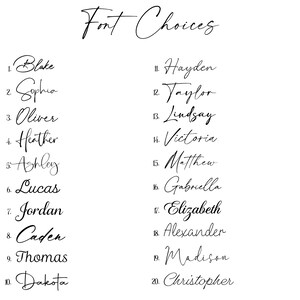 Font Choices
1. Blake
2. Sophia
3. Oliver
4. Heather
5. Ashley
6. Lucas
7. Jordan
8. Caden
9. Thomas
10. Dakota
11. Hayden
12. Taylor
13. Lindsay
14. Victoria
15. Matthew
16. Gabriella
17. Elizabeth
18. Alexander
19. Madison
20. Christopher